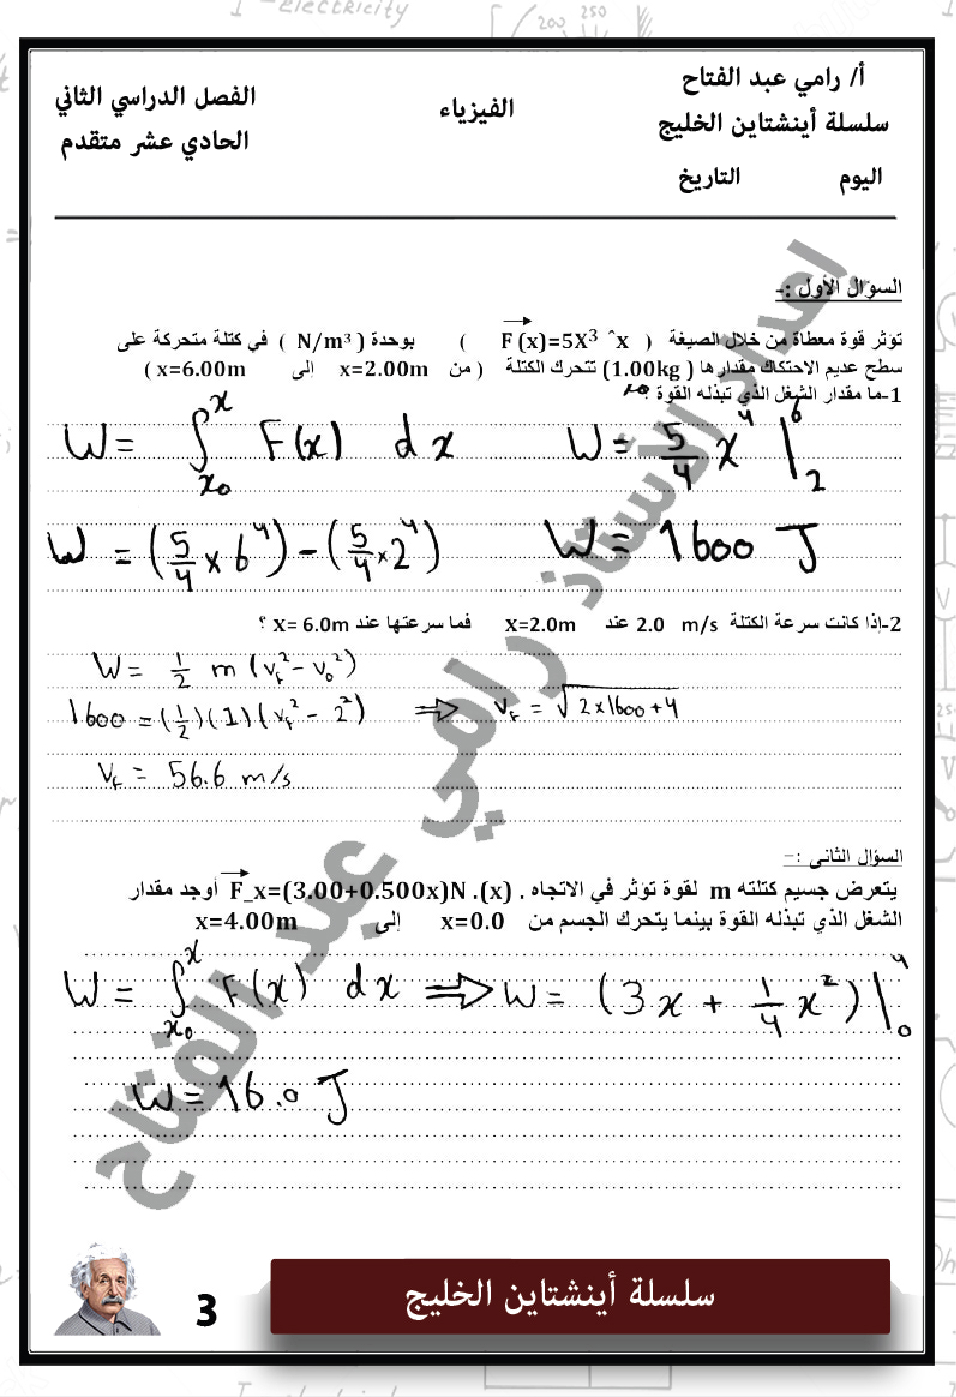 أ/ رامي عبد الفتاح
سلسلة أينشتاين الخليج
اليوم التاريخ
الفيزياء
الفصل الدراسي الثاني
الحادي عشر متقدم
السؤال الأول :-
تؤثر قوة معطاة من خلال الصيغة ( F (x)=5X³ ^x ) بوحدة ( N/m³ ) في كتلة متحركة على
سطح عديم الاحتكاك مقدارها (1.00kg ) تتحرك الكتلة ( من x=2.00m إلى x=6.00m )
1-ما مقدار الشغل الذي تبذله القوة ؟
W = ∫_{x₀}^{x} F(x) dx W = 5/4 x⁴ |₂⁶
W = (5/4 × 6⁴) - (5/4 × 2⁴) W = 1600 J
2-إذا كانت سرعة الكتلة 2.0 m/s عند x=2.0m فما سرعتها عند x= 6.0m ؟
W = 1/2 m (v_f² - v₀²)
1600 = (1/2)(1)(v_f² - 2²) ⇒ v_f = √(2×1600+4)
v_f = 56.6 m/s
السؤال الثانى :-
يتعرض جسيم كتلته m لقوة تؤثر في الاتجاه . (x). F_x=(3.00+0.500x)N أوجد مقدار
الشغل الذي تبذله القوة بينما يتحرك الجسم من x=0.0 إلى x=4.00m
W = ∫_{x₀}^{x} F(x) dx ⇒ W = (3x + 1/4 x²)|₀⁴
W = 16.0 J
إعداد الأستاذ رامي عبد الفتاح
سلسلة أينشتاين الخليج
3